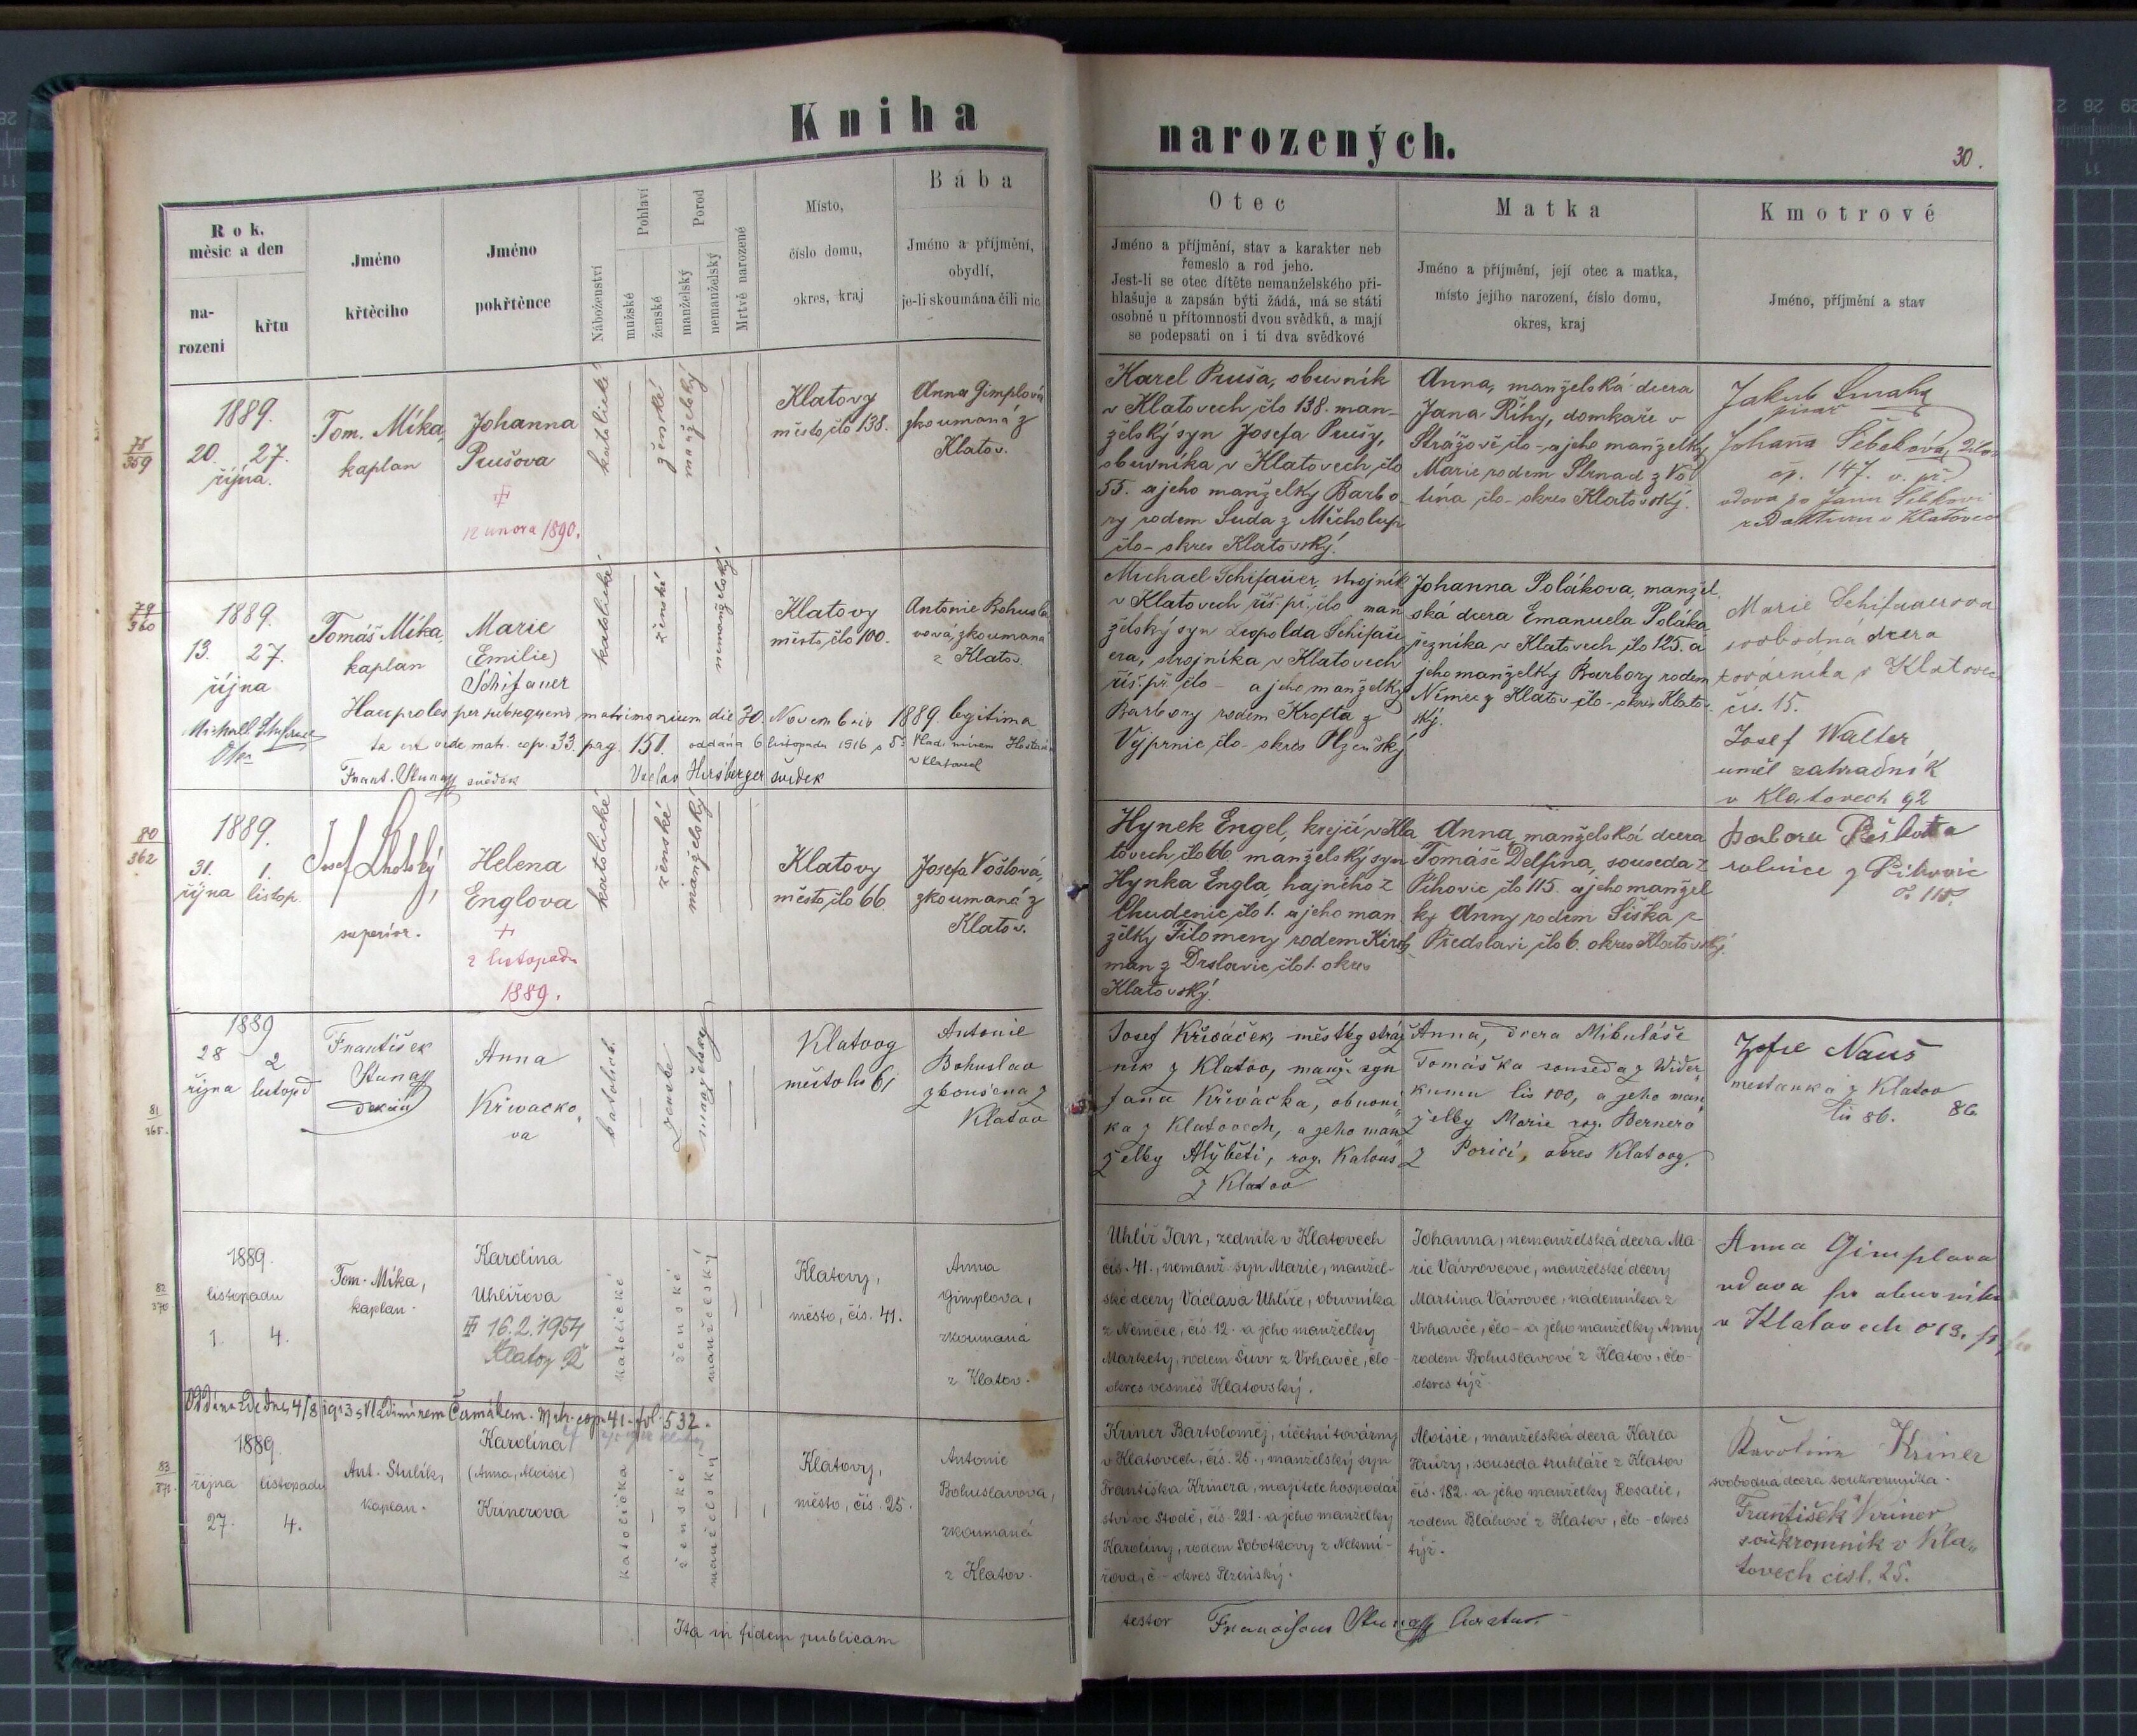 Kniha
narozených.
30.
Rok,
měsic a den
na-
rozeni
křtu
Jméno
křtěcího
Jméno
pokřtěnce
Náboženství
Pohlaví
mužské
ženské
Porod
manželský
nemanželský
Mrtvě narozené
Místo,
číslo domu,
okres, kraj
Bába
Jméno a příjmění,
obydlí,
je-li skoumána čili nic
Otec
Jméno a příjmění, stav a karakter neb
řemeslo a rod jeho.
Jest-li se otec dítěte nemanželského při-
hlašuje a zapsán býti žádá, má se státi
osobně u přítomnosti dvou svědků, a mají
se podepsati on i ti dva svědkové
Matka
Jméno a příjmění, její otec a matka,
místo jejího narození, číslo domu,
okres, kraj
Kmotrové
Jméno, příjmění a stav
78
359
1889.
20. 27.
října.
Tom. Míka,
kaplan
Johanna
Prušova
12 února 1890.
katolické
ženské
manželský
Klatovy
město, člo 138.
Anna Gimplová
zkoumaná z
Klatov.
Karel Pruša, obuvník
v Klatovech člo 138. man-
želský syn Josefa Prušy,
obuvníka v Klatovech, člo
55. a jeho manželky Barbo-
ry rodem Suda z Měcholup
člo - okres Klatovský.
Anna, manželská dcera
Jana Říhy, domkaře v
Strážově člo - a jeho manželky
Marie rodem Strnad z Vol-
tína člo - okres Klatovský.
Jakub
písař
Johana Šebeková,
čp. 147. v. př.
vdova po Janu
v Klatovech
79
360
1889.
13. 27.
října
Tomáš Míka,
kaplan
Marie
(Emilie)
Schifauer
katolické
ženské
nemanželský
Klatovy
město, člo 100.
Antonie Bohusla
vová, zkoumaná
z Klatov.
Haec proles per subsequens matrimonium die 30. Novembris 1889. legitima
ta est vide matr. cop. 33. pag. 151. oddána 6 listopadu 1916 s
v Klatovech
Frant. svědek
Václav Hirsberger svědek
Michael Schifauer, strojník
v Klatovech říš. př. člo man
želský syn Leopolda Schifau
era, strojníka v Klatovech
říš. př. člo - a jeho manželky
Barbory rodem Krofta z
Vejprnic člo - okres Plzeňský
Johanna Polákova, manžel.
ská dcera Emanuela Poláka
řezníka v Klatovech člo 125. a
jeho manželky Barbory rodem
Němec z Klatov člo - okres Klatov
ský.
Marie Schifauerova
svobodná dcera
továrníka v Klatovech
čís. 15.
Josef Walter
uměl zahradník
v Klatovech 92
80
362
1889.
31. 1.
října listop.
Josef Lhotský,
superior.
Helena
Englova
+
2 listopadu
1889.
katolické
ženské
manželský
Klatovy
město, člo 66.
Josefa Voštová,
zkoumaná z
Klatov.
Hynek Engel, krejčí v Kla
tovech člo 66. manželský syn
Hynka Engla, hajného z
Chudenic člo 1. a jeho man
želky Filomeny rodem Kirch
man z Drslavic, člo 1. okres
Klatovský.
Anna, manželská dcera
Tomáše Delfína, souseda z
Pihovic člo 115. a jeho manžel
ky Anny rodem Šiška z
Předslavi člo 6. okres Klatovský.
Barbora
rolnice z
č. 115.
81
365.
1889
28 2
října listopd
František
děkan
Anna
Křivačko
va
katolick.
ženské
manželský
Klatovy
město lis 61
Antonie
Bohuslav
zkoušena z
Klatov
Josef Křiváček, městky stráž
ník z Klatov, manž. syn
Jana Křiváčka, obuvní
ka z Klatovech, a jeho man
želky Alžběti, roz. Kalous
z Klatov
Anna, dcera Mikuláše
Tomáška souseda z Wider
kumu lis 100, a jeho man
želky Marie roz. Bernero
z Poricí, okres Klatovy.
Žofie Nauš
mestanka z Klatov
lis 86. 86
82
370
1889.
listopadu
1. 4.
Tom. Míka,
kaplan.
Karolina
Uhlířova
16.2.1954
Klatovy
katolické
ženské
manželský
Klatovy,
město, čís. 41.
Anna
Gimplova,
zkoumaná
z Klatov.
Uhlíř Jan, zedník v Klatovech
čís. 41., nemanž. syn Marie, manžel-
ské dcery Václava Uhlíře, obuvníka
z Němčic, čís. 12. a jeho manželky
Markety, rodem Šuvr z Vrhavče, člo -
okres vesměs Klatovský.
Johanna, nemanželská dcera Ma-
rie Vávrovcove, manželské dcery
Martina Vávrovce, nádenníka z
Vrhavče, člo - a jeho manželky Anny
rodem Bohuslavové z Klatov, člo -
okres týž.
Anna Gimplova
vdova po obuvníku
v Klatovech
Oddána zde dne 4/8 1913 s Vladimírem Čermákem. Mtr. cop. 41. fol. 532.
83
371.
1889.
října listopadu
27. 4.
Ant. Stulík,
kaplan.
Karolina
(Anna, Aloisie)
Krinerova
katolická
ženské
manželský
Klatovy,
město, čís. 25.
Antonie
Bohuslavova,
zkoumaná
z Klatov.
Kriner Bartoloměj, účetní továrny
v Klatovech, čís. 25., manželský syn
Františka Krinera, majitele hospodář
ství ve Stodě, čís. 221. a jeho manželky
Karoliny, rodem Sobotkovy z Nekmí-
řova, č - okres Plzeňský.
Aloisie, manželská dcera Karla
Hrůzy, souseda truhláře z Klatov
čís. 182. a jeho manželky Rosalie,
rodem Blahové z Klatov, člo - okres
týž.
Karolina Kriner
svobodna dcera soukromnika.
František Kriner
soukromnik v Kla„
tovech čisl. 25.
Ita in fidem publicam
testor Franciscus